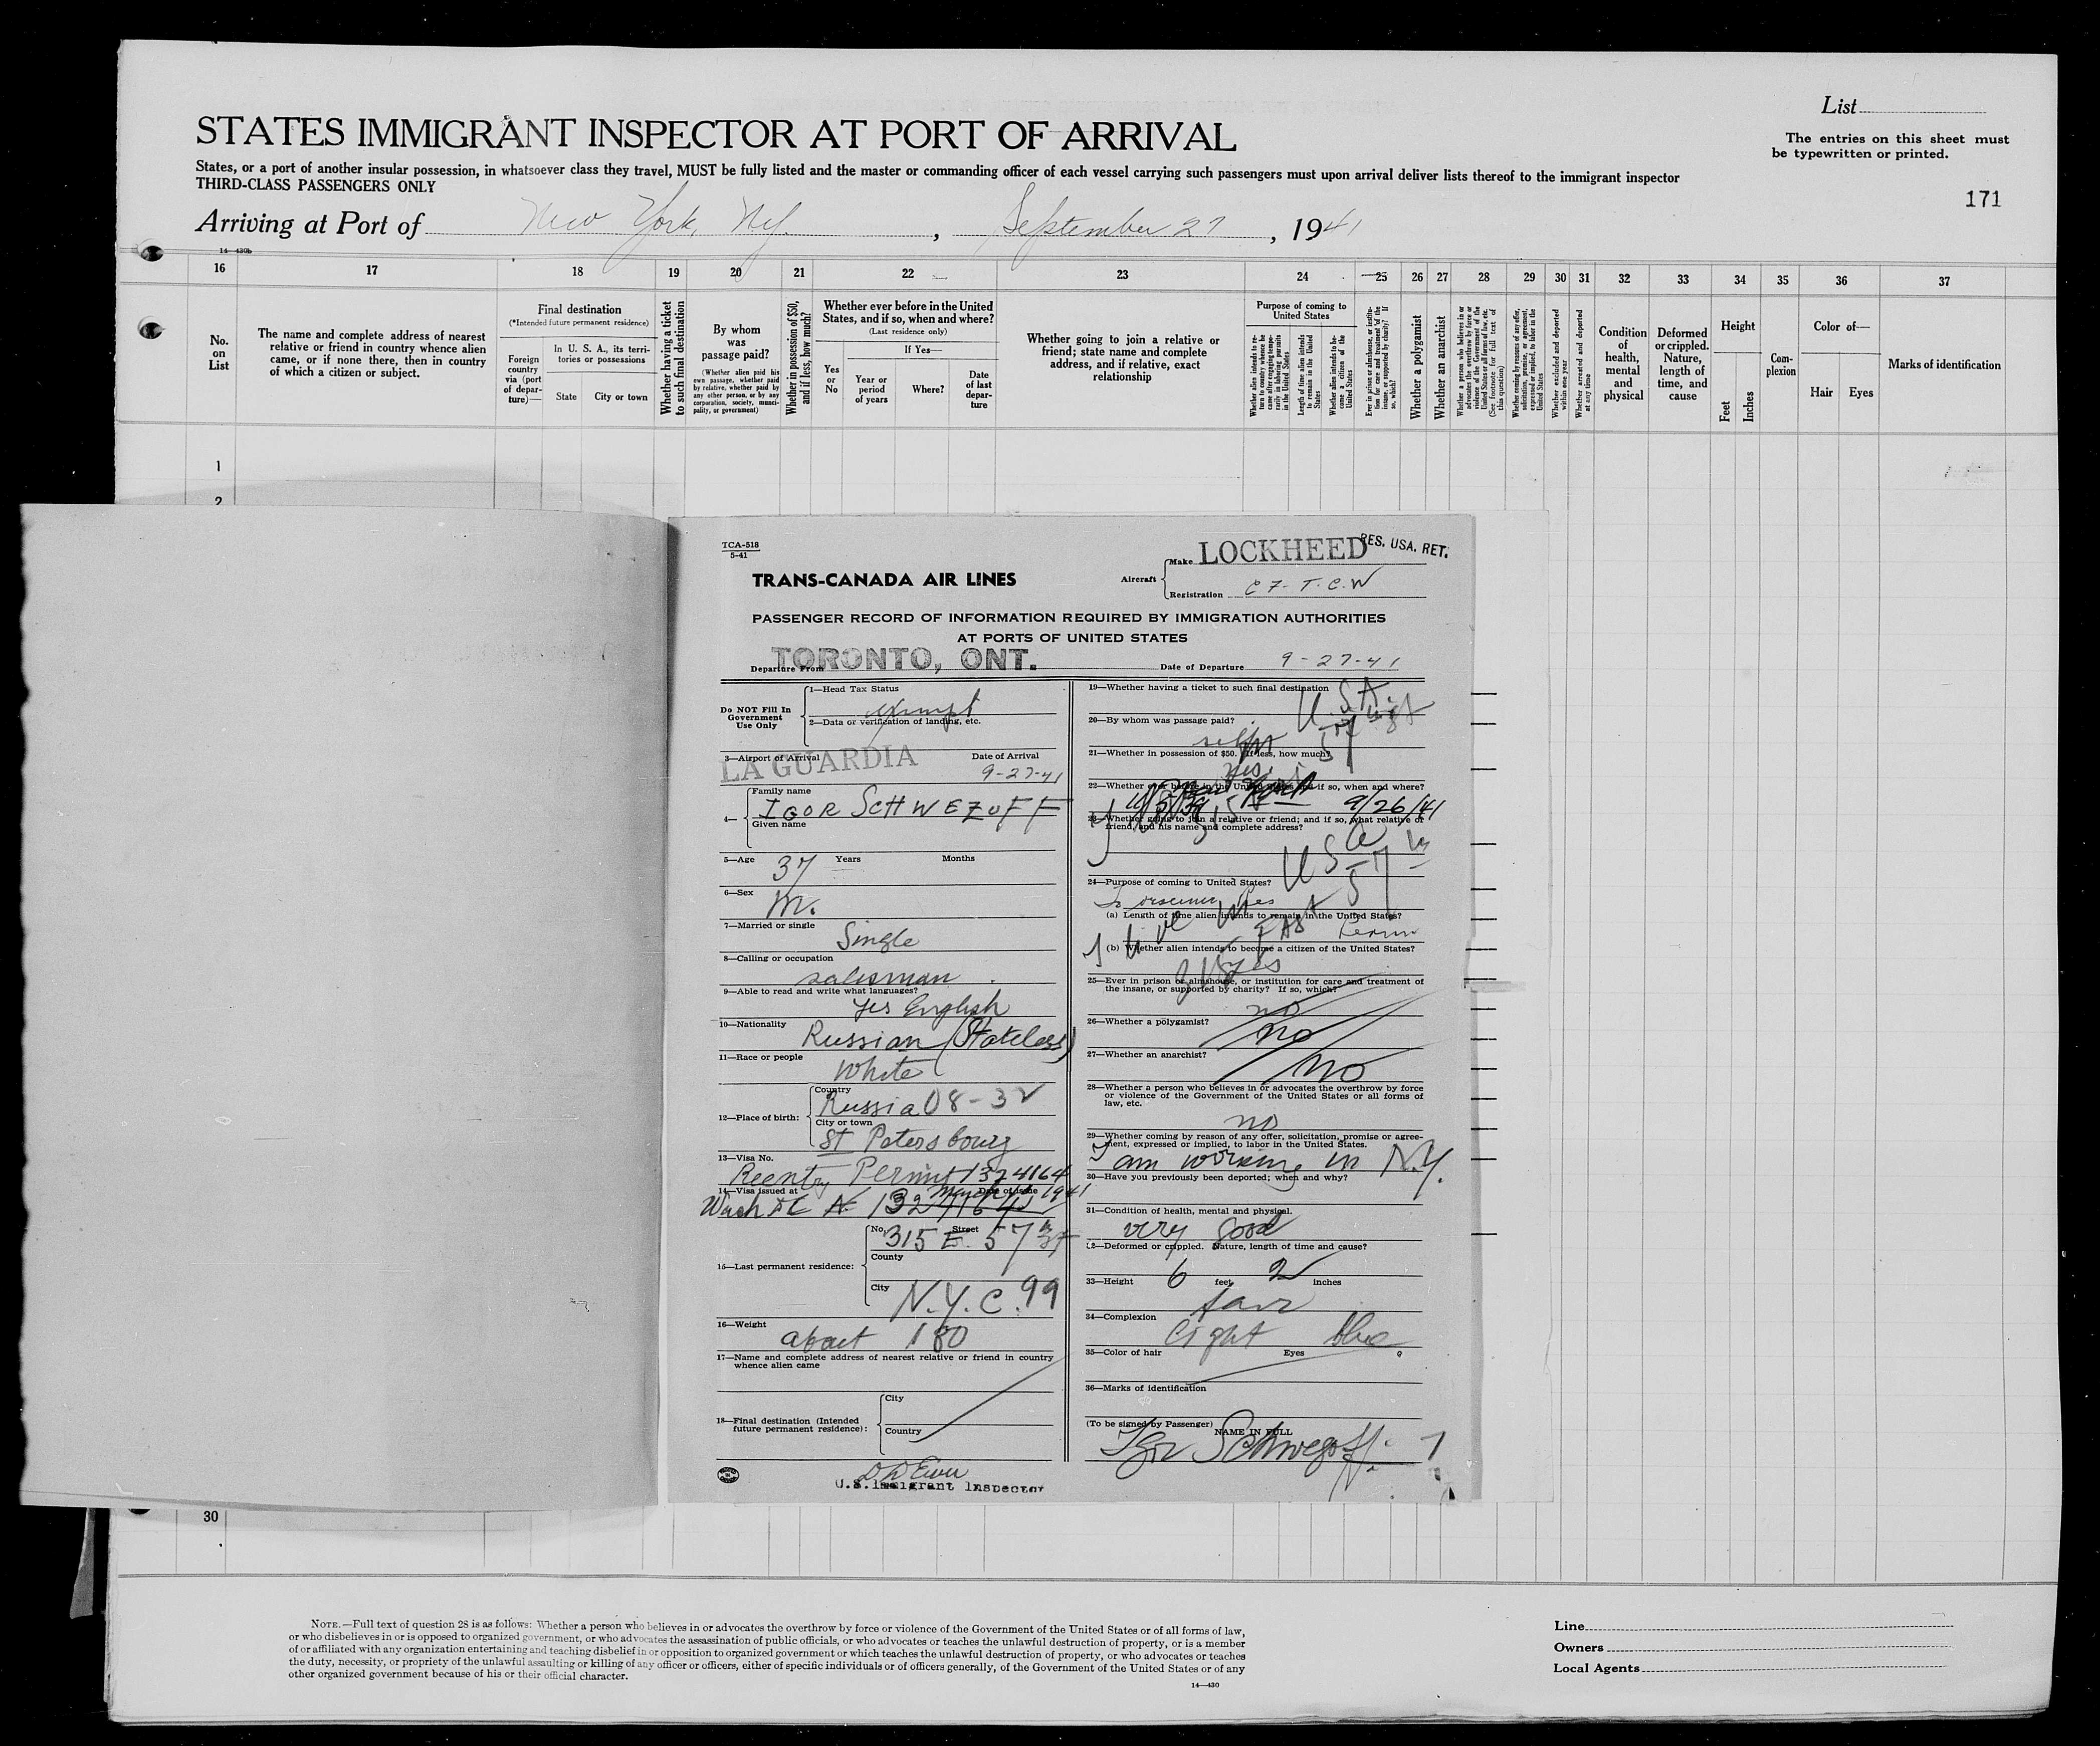 List
STATES IMMIGRANT INSPECTOR AT PORT OF ARRIVAL
The entries on this sheet must
be typewritten or printed.
States, or a port of another insular possession, in whatsoever class they travel, MUST be fully listed and the master or commanding officer of each vessel carrying such passengers must upon arrival deliver lists thereof to the immigrant inspector
THIRD-CLASS PASSENGERS ONLY
171
Arriving at Port of New York, Ny. , September 27, 1941
14—430b
16 17 18 19 20 21 22 23 24 25 26 27 28 29 30 31 32 33 34 35 36 37
No. on List
The name and complete address of nearest relative or friend in country whence alien came, or if none there, then in country of which a citizen or subject.
Final destination
(*Intended future permanent residence)
Foreign country via (port of departure)—
In U. S. A., its territories or possessions
State City or town
Whether having a ticket to such final destination
By whom was passage paid?
(Whether alien paid his own passage, whether paid by relative, whether paid by any other person, or by any corporation, society, municipality, or government)
Whether in possession of $50, and if less, how much?
Whether ever before in the United States, and if so, when and where?
(Last residence only)
Yes or No
If Yes—
Year or period of years
Where?
Date of last departure
Whether going to join a relative or friend; state name and complete address, and if relative, exact relationship
Purpose of coming to United States
Length of time alien intends to remain in the United States
Whether alien intends to become a citizen of the United States
Whether a polygamist
Whether an anarchist
Whether excluded and deported within one year
Whether arrested and deported at any time
Condition of health, mental and physical
Deformed or crippled. Nature, length of time, and cause
Height
Feet Inches
Complexion
Color of—
Hair Eyes
Marks of identification
1
2
TCA-518
5-41
TRANS-CANADA AIR LINES
Aircraft
Make LOCKHEED
RES. USA. RET.
Registration CF-T.C.W
PASSENGER RECORD OF INFORMATION REQUIRED BY IMMIGRATION AUTHORITIES
AT PORTS OF UNITED STATES
Departure From TORONTO, ONT.
Date of Departure 9-27-41
Do NOT Fill In Government Use Only
1—Head Tax Status
exempt
2—Data or verification of landing, etc.
3—Airport of Arrival LA GUARDIA
Date of Arrival
9-27-41
4—
Family name
IGOR SCHWEZOFF
Given name
5—Age 37 Years Months
6—Sex M.
7—Married or single
Single
8—Calling or occupation
salesman
9—Able to read and write what languages?
Yes English
10—Nationality Russian (Stateless)
11—Race or people
White
12—Place of birth:
Country
Russia 08-32
City or town
St Petersbourg
13—Visa No.
Reentry Permit 1324164
14—Visa issued at Date of issue
Wash DC
15—Last permanent residence:
No. Street
315 E. 57th St
County
City
N.Y.C. 99
16—Weight
about 180
17—Name and complete address of nearest relative or friend in country
whence alien came
18—Final destination (Intended
future permanent residence):
City
Country
U.S. Immigrant Inspector
19—Whether having a ticket to such final destination
U.S.A.
20—By whom was passage paid?
self
21—Whether in possession of $50. If less, how much?
yes.
22—Whether ever before in the United States and if so, when and where?
9/26/41
23—Whether going to join a relative or friend; and if so, what relative or
friend, and his name and complete address?
USA
24—Purpose of coming to United States?
(a) Length of time alien intends to remain in the United States?
(b) Whether alien intends to become a citizen of the United States?
yes
25—Ever in prison or almshouse, or institution for care and treatment of
the insane, or supported by charity? If so, which?
no
26—Whether a polygamist?
no
27—Whether an anarchist?
no
28—Whether a person who believes in or advocates the overthrow by force
or violence of the Government of the United States or all forms of
law, etc.
no
29—Whether coming by reason of any offer, solicitation, promise or agree-
ment, expressed or implied, to labor in the United States.
I am working in N.Y.
30—Have you previously been deported; when and why?
31—Condition of health, mental and physical.
very good
32—Deformed or crippled. Nature, length of time and cause?
33—Height 6 feet 2 inches
fair
34—Complexion
light blue
35—Color of hair Eyes
36—Marks of identification
(To be signed by Passenger)
NAME IN FULL
Igor Schwezoff.
30
NOTE.—Full text of question 28 is as follows: Whether a person who believes in or advocates the overthrow by force or violence of the Government of the United States or of all forms of law,
or who disbelieves in or is opposed to organized government, or who advocates the assassination of public officials, or who advocates or teaches the unlawful destruction of property, or is a member
of or affiliated with any organization entertaining and teaching disbelief in or opposition to organized government or which teaches the unlawful destruction of property, or who advocates or teaches
the duty, necessity, or propriety of the unlawful assaulting or killing of any officer or officers, either of specific individuals or of officers generally, of the Government of the United States or of any
other organized government because of his or their official character.
14—430
Line
Owners
Local Agents